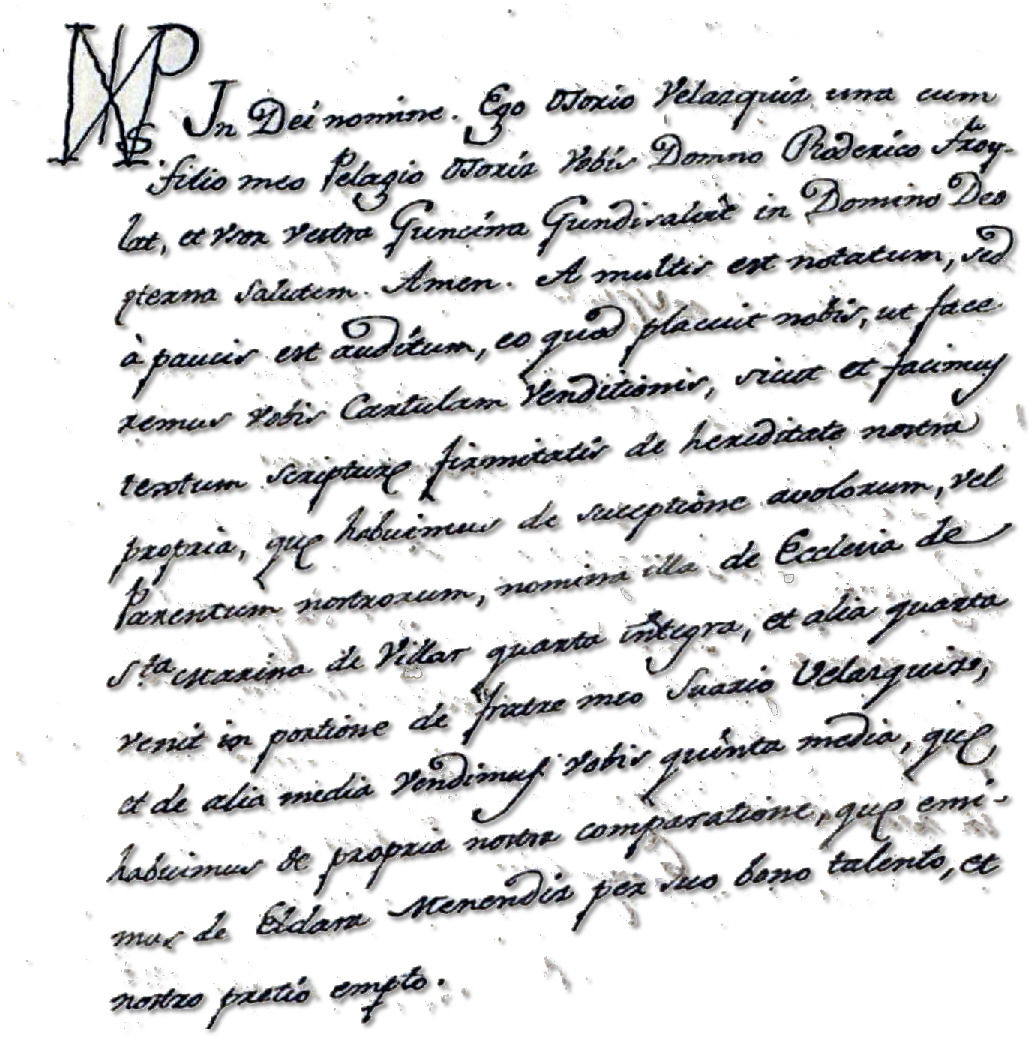 In Dei nomine. Ego Osorio Velasquis una cum
filio meo Pelagio Osoris Vobis Domno Roderico Froy-
laz, et Uxor vestra Guncina Gundisalviz in Domino Deo
eterna salutem. Amen. A multis est notatum, sed
à paucis est auditum, eo quod placuit nobis, ut face
remus vobis Cartulam Venditionis, sicut et facimus
textum scripturę firmitatis de hereditate nostra
propria, quę habuimus de suceptione avolorum, vel
Parentum nostrorum, nomina illa de Ecclesia de
S.ta Marina de Villar quarta integra, et alia quarta
venit in portione de fratre meo Suario Velasquiz,
et de alia media vendimus vobis quinta media, quę
habuimus de propria nostra comparatione, quę emi-
mus de Eldara Menendiz per suo bono talento, et
nostro pretio empto.